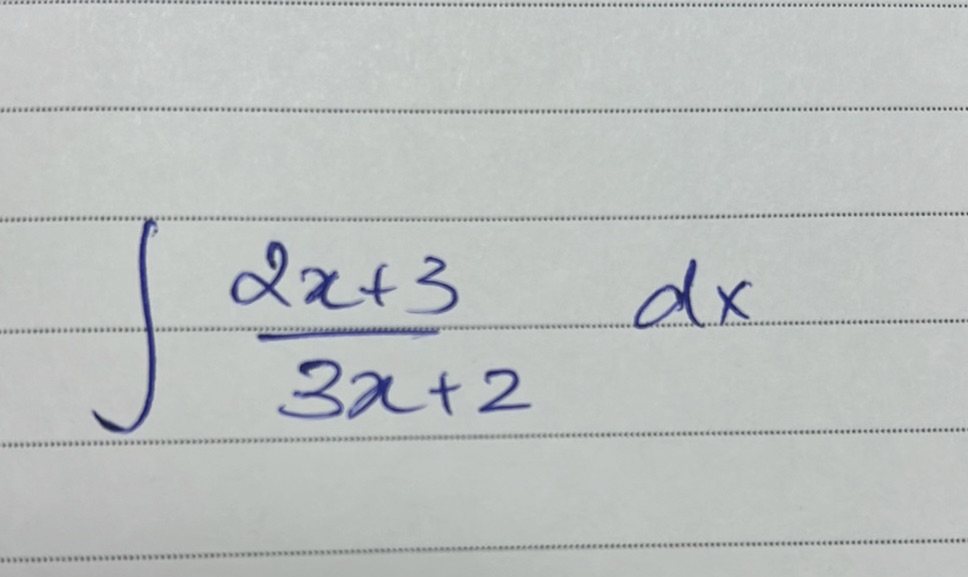 ∫ (2x+3)/(3x+2) dx